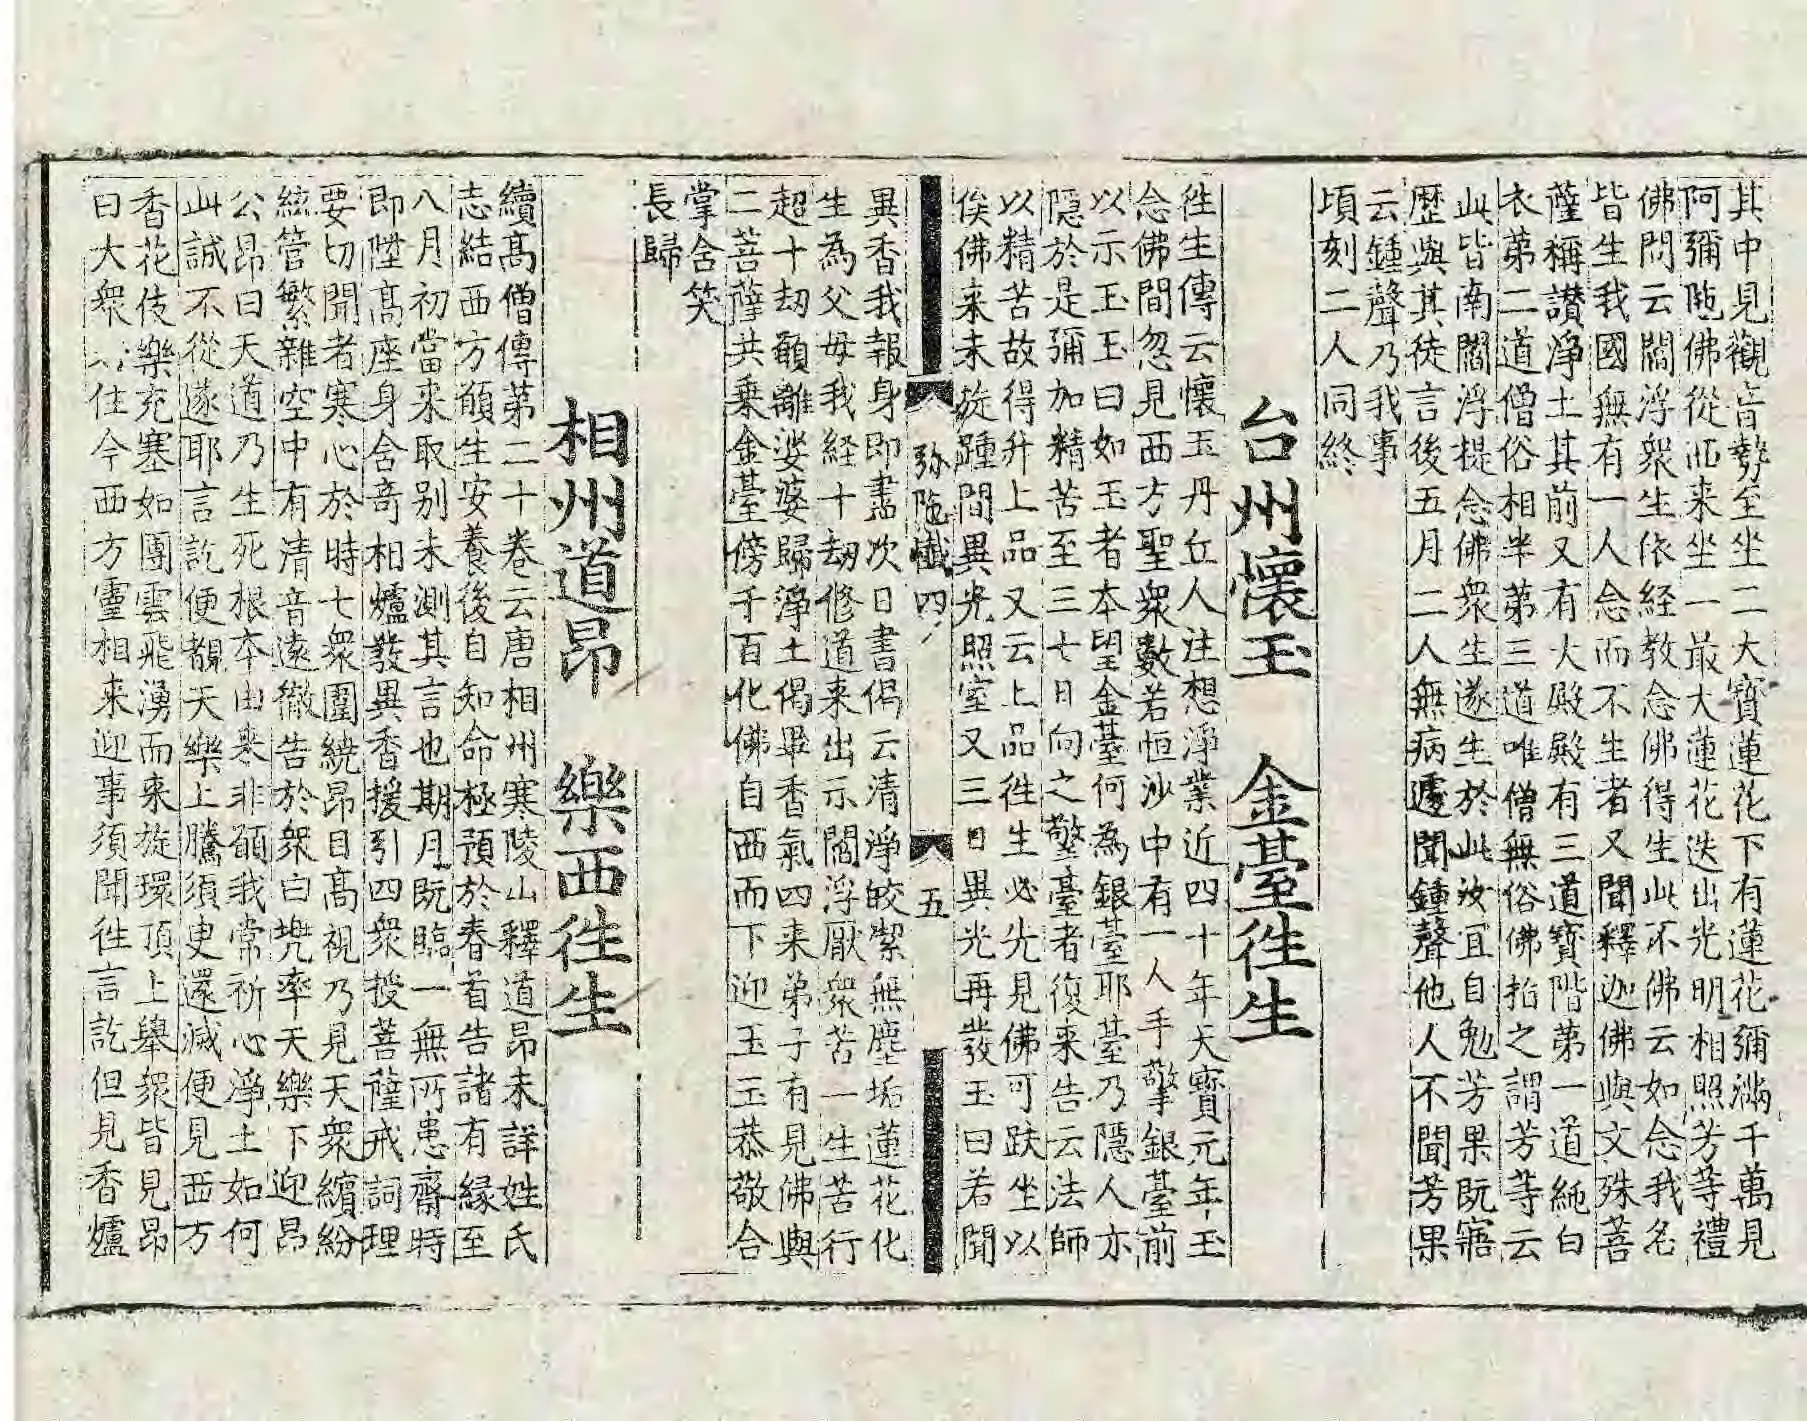 其中見觀音勢至坐二大寶蓮花下有蓮花彌滿千萬見
阿彌陁佛從西來坐一最大蓮花迭出光明相照芳等禮
佛問云閻浮眾生依經教念佛得生此不佛云如念我名
皆生我國無有一人念而不生者又聞釋迦佛與文殊菩
薩稱讃淨土其前又有大殿殿有三道寶階第一道純白
衣第二道僧俗相半第三道唯僧無俗佛指之謂芳等云
此皆南閻浮提念佛眾生遂生於此汝宜自勉芳果既寤
歷與其徒言後五月二人無病遽聞鍾聲他人不聞芳果
云鍾聲乃我事
頃刻二人同終
台州懷玉 金臺徃生
徃生傳云懷玉丹丘人注想淨業近四十年天寶元年玉
念佛間忽見西方聖眾數若恒沙中有一人手擎銀臺前
以示玉玉曰如玉者本望金臺何為銀臺耶臺乃隱人亦
隱於是彌加精苦至三七日向之擎臺者復来告云法師
以精苦故得升上品又云上品徃生必先見佛可趺坐以
俟佛来未旋踵間異光照室又三日異光再發玉曰若聞
弥陁懺四
五
異香我報身即盡次日書偈云清淨皎潔無塵垢蓮花化
生為父母我経十劫修道来出示閻浮厭眾苦一生苦行
超十劫願離娑婆歸淨土偈畢香氣四来弟子有見佛與
二菩薩共乗金臺傍千百化佛自西而下迎玉玉恭敬合
掌含笑
長歸
相州道昂 樂西徃生
續高僧傳第二十卷云唐相州寒陵山釋道昂未詳姓氏
志結西方願生安養後自知命極預於春首告諸有緣至
八月初當来取别未測其言也期月既臨一無所患齋時
即陞高座身含奇相爐發異香援引四眾授菩薩戒詞理
要切聞者寒心於時七眾圍繞昂目高視乃見天眾繽紛
絃管繁雜空中有清音遠徹告於眾曰兠率天樂下迎昂
公昂曰天道乃生死根本由来非願我常祈心淨土如何
此誠不從遂耶言訖便覩天樂上騰須臾還滅便見西方
香花伎樂充塞如團雲飛湧而来旋環頂上舉眾皆見昂
曰大眾住今西方靈相来迎事須聞徃言訖但見香爐